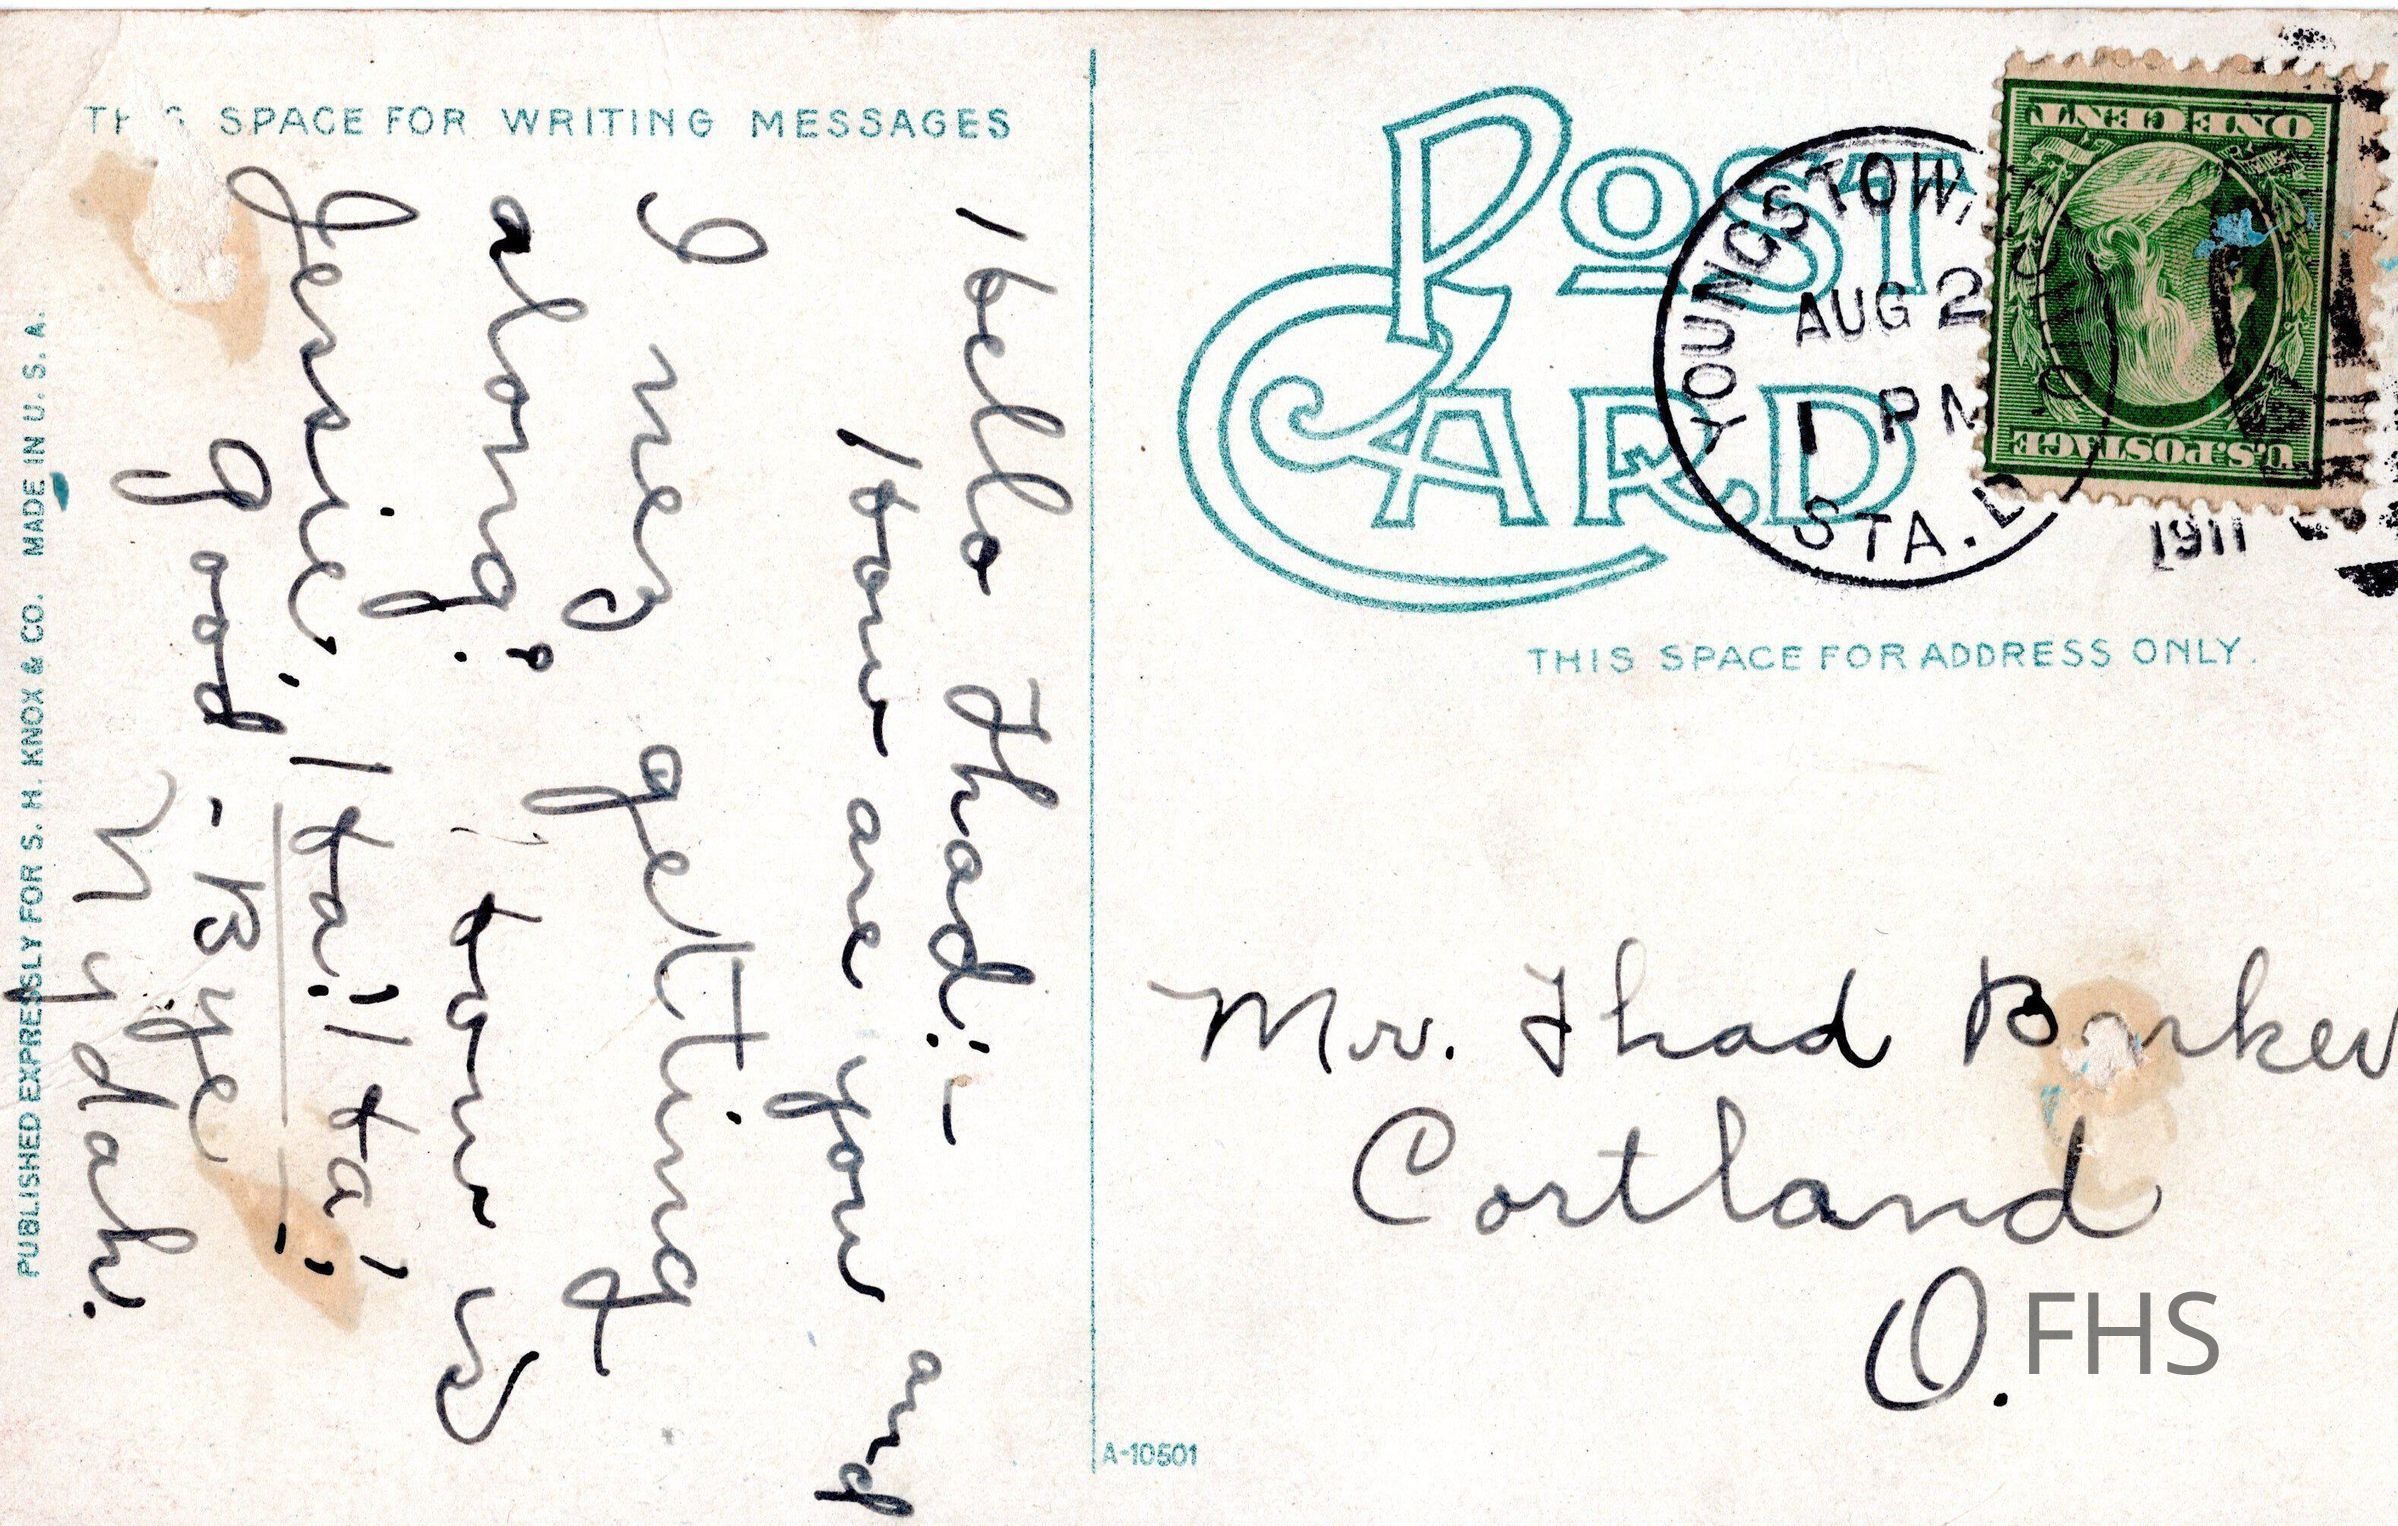 THIS SPACE FOR WRITING MESSAGES
Hello Thad:-
How are you and
I getting
along?
Good-Bye
PUBLISHED EXPRESSLY FOR S. H. KNOX & CO. MADE IN U. S. A.
POST CARD
YOUNGSTOWN, OHIO.
AUG 2
1 PM
STA. D
1911
ONE CENT
U.S.POSTAGE
THIS SPACE FOR ADDRESS ONLY.
Mr. Thad Barker
Cortland
O.
FHS
A-10501